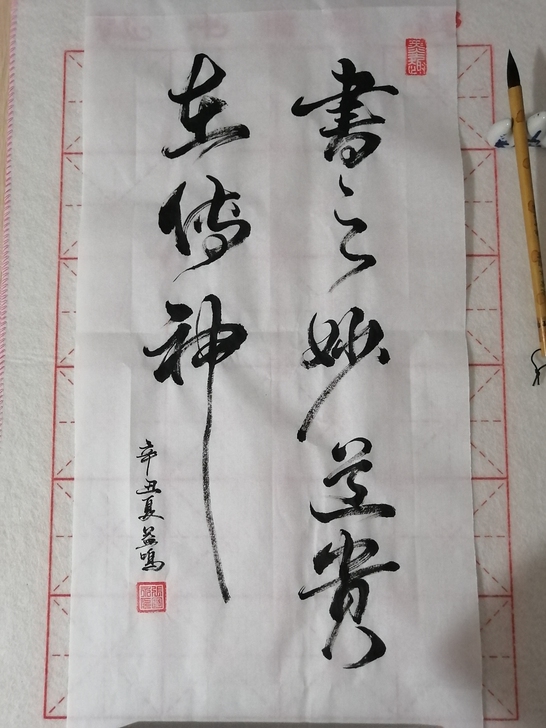 書之妙道贵
在傳神
辛丑夏益鳴